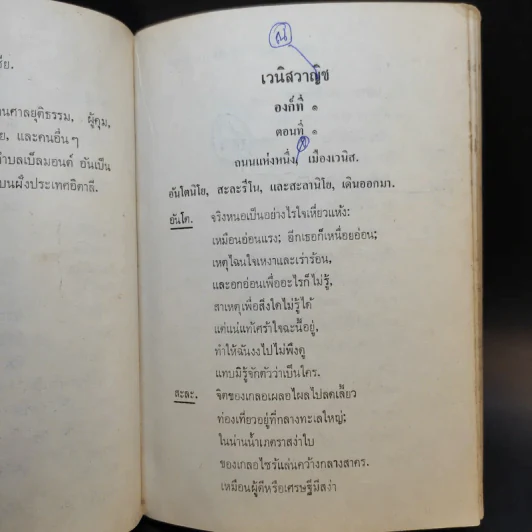 ชัย.
นศาลยุติธรรม, ผู้คุม,
ย, และคนอื่นๆ
ำบลเบ็ลมอนต์ อันเป็น
บนฝั่งประเทศอิตาลี.
ณ์
เวนิสวาณิช
องก์ที่ ๑
ตอนที่ ๑
ถนนแห่งหนึ่ง, เมืองเวนิส.
อันโตนิโย, สะละรีโน, และสะลานิโย, เดินออกมา.
อันโต. จริงหนอเป็นอย่างไรใจเหี่ยวแห้ง:
เหมือนอ่อนแรง; อีกเธอก็เหนื่อยอ่อน;
เหตุไฉนใจเหงาและเร่าร้อน,
และอกอ่อนเพื่ออะไรก็ไม่รู้,
สาเหตุเพื่อสิ่งใดไม่รู้ได้
แต่แน่แท้เศร้าใจฉะนี้อยู่,
ทำให้ฉันงงไปไม่พึงดู
แทบมิรู้จักตัวว่าเป็นใคร.
สะละ. จิตของเกลอเผลอไผลไปลดเลี้ยว
ท่องเที่ยวอยู่ที่กลางทะเลใหญ่;
ในน่านน้ำเภตราสง่าใบ
ของเกลอไซร้แล่นคว้างกลางสาคร.
เหมือนผู้ดีหรือเศรษฐีมีสง่า